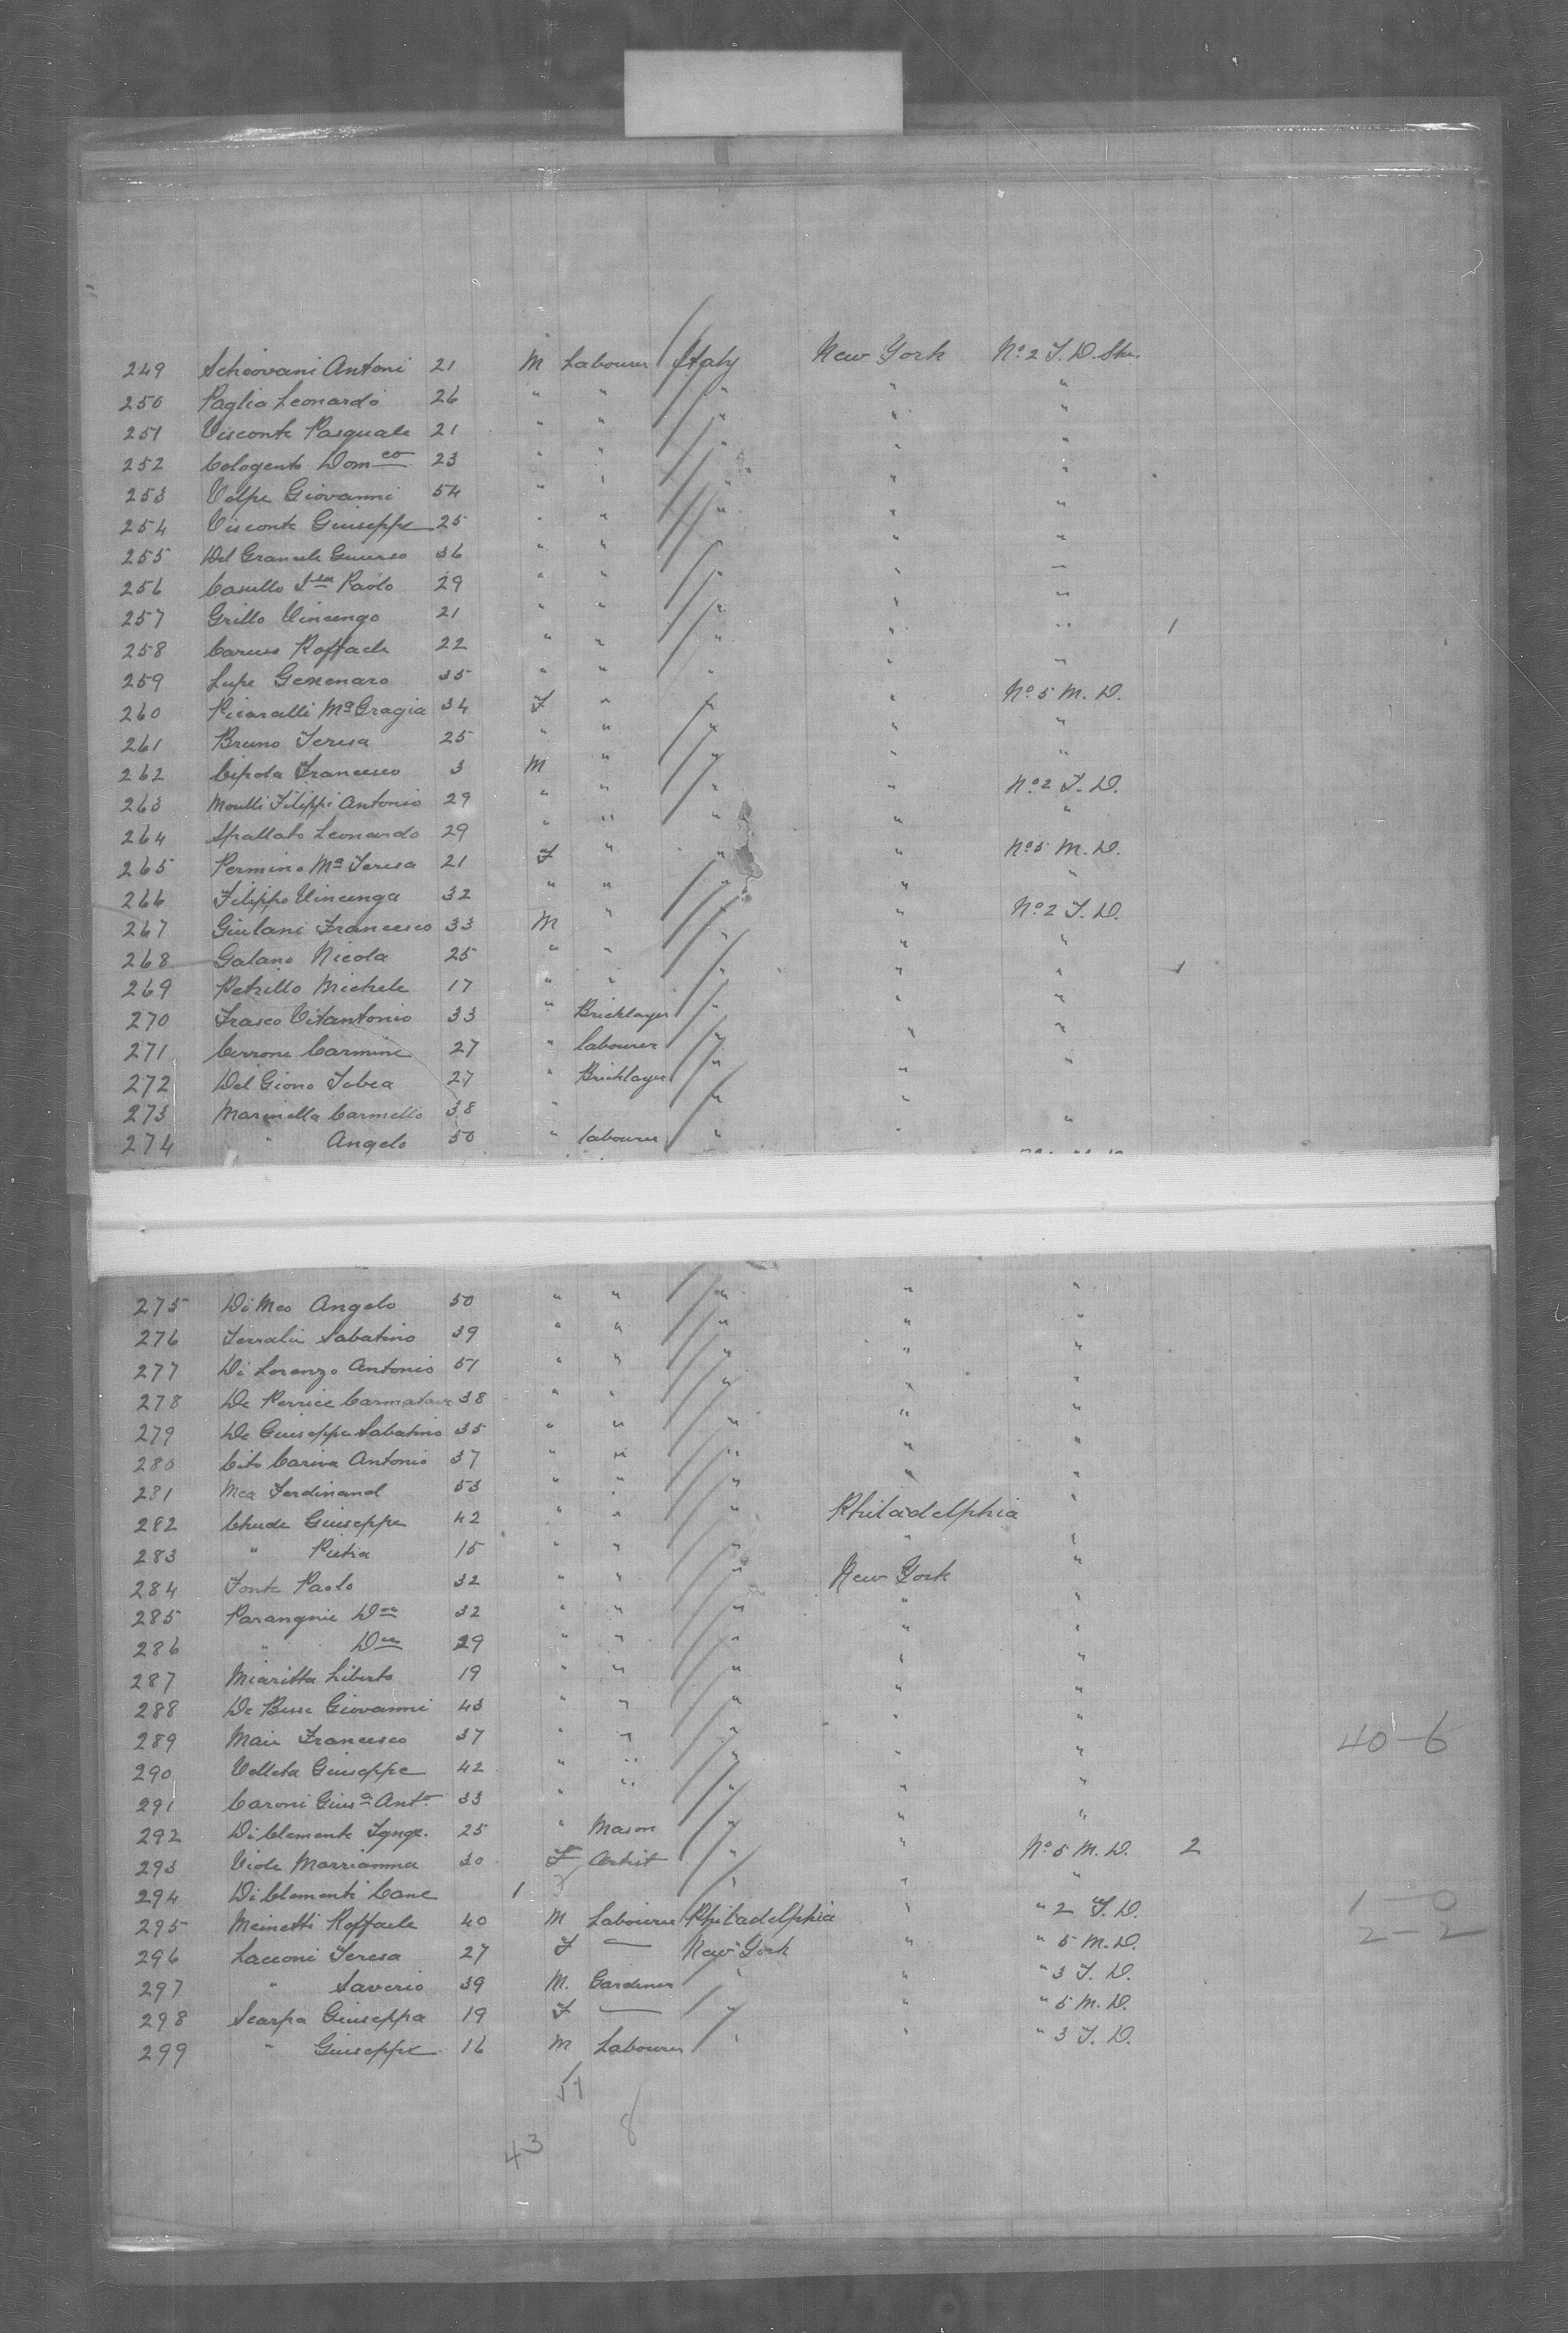 249 Schiovani Antoni 21 M Labourer Italy New York No. 2 I. D. Str.
250 Paglia Leonardo 26 " " " " "
251 Visconte Pasquale 21 " " " " "
252 Cologento Domco 23 " " " " "
253 Volpe Giovanni 54 " " " " "
254 Visconte Giuseppe 25 " " " " "
255 Del Grancale 36 " " " " "
256 Casullo Paolo 29 " " " " "
257 Grillo Vincenzo 21 " " " " "
258 Caruso Raffaele 22 " " " " " 1
259 Lupe Gennenaro 35 " " " " "
260 Picaralli Ma Grazia 34 F " " " No. 5 M. D.
261 Bruno Teresa 25 " " " " "
262 Cipola Francesco 3 M " " " "
263 Moulli Filippi Antonio 29 " " " " No. 2 I. D.
264 Spallato Leonardo 29 " " " " "
265 Permino Ma Teresa 21 F " " " No. 5 M. D.
266 Filippo Vincenza 32 " " " " "
267 Giulani Francesco 33 M " " " No. 2 I. D.
268 Galano Nicola 25 " " " " "
269 Petrillo Michele 17 " " " " " 1
270 Frasco Vitantonio 33 " Bricklayer " " "
271 Cerrone Carmine 27 " labourer " " "
272 Del Giono Tobea 27 " Bricklayer " " "
273 Marinella Carmello 38 " " "
274 " Angelo 50 " labourer " " "
275 Di Meo Angelo 50 " " " " "
276 Ferralii Sabatino 39 " " " " "
277 Di Lorenzo Antonio 51 " " " " "
278 De Perrice 38 " " " " "
279 De Giuseppe Sabatino 35 " " " " "
280 Cito Cariva Antonio 37 " " " " "
281 Mea Ferdinand 53 " " " " "
282 Chude Giuseppe 42 " " " Philadelphia "
283 " Pietra 15 " " " " "
284 Fonte Paolo 32 " " " New York "
285 Parangnie Dom 32 " " " " "
286 " Dom 29 " " " " "
287 Miaritta Liberto 19 " " " " "
288 De Buse Giovanni 43 " " " " "
289 Maii Francesco 37 " " " " " 40-6
290 Velleta Giuseppe 42 " " " " "
291 Caroni Giusa Anto. 33 " " " " "
292 Di Clemente 25 " Mason " " "
293 Viole Marrianna 30 F Artist " " No. 5 M. D. 2
294 Di Clementi Canc 1 " " "
295 Meinetti Raffaele 40 M Labourer Philadelphia " " 2 I. D. 1-0
296 Lacconi Teresa 27 F — New York " " 5 M. D. 2-2
297 " Saverio 39 M. Gardener " " " 3 I. D.
298 Scarpa Giuseppa 19 F — " " " 5 M. D.
299 " Giuseppe 16 M Labourer " " " 3 I. D.
51
8
43